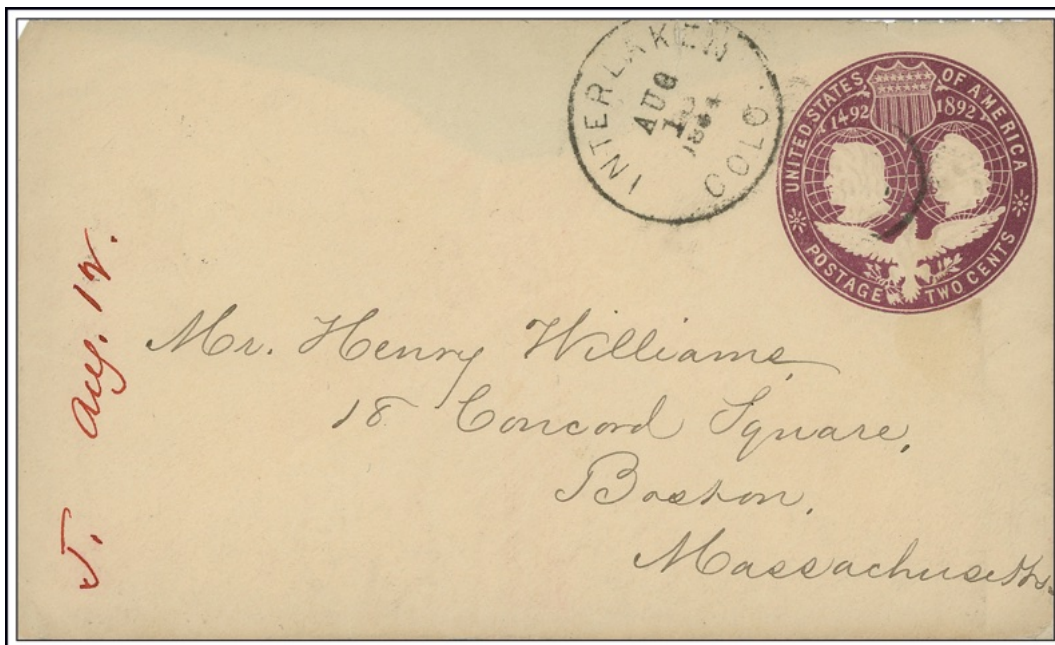 INTERLAKEN
AUG
COLO.
UNITED STATES OF AMERICA
1492 1892
POSTAGE TWO CENTS
Mr. Henry Williams,
18 Concord Square,
Boston,
Massachusetts.
J. Aug. 12.